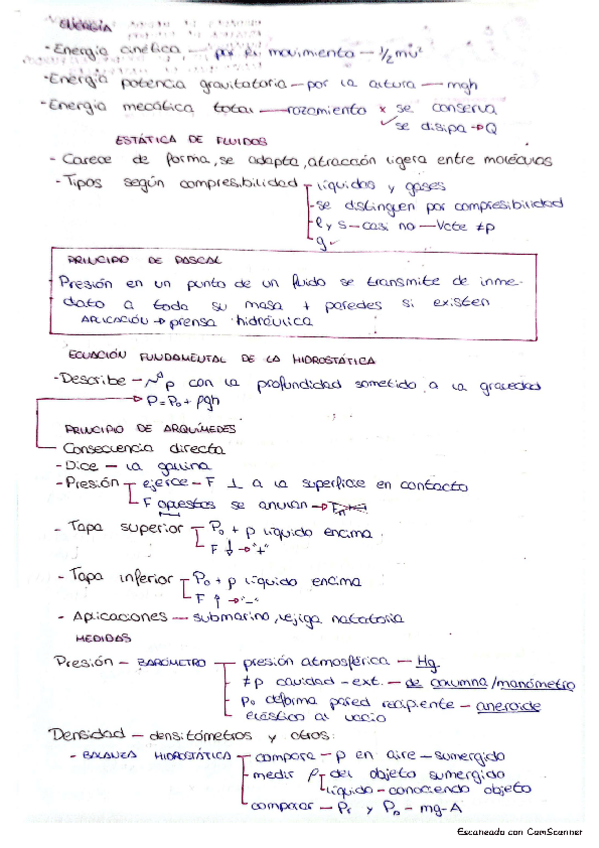 ENERGÍA
- Energía cinética — por su movimiento — ½mv²
- Energía potencia gravitatoria — por la altura — mgh
- Energía mecática total — rozamiento x se conserva
✓ se disipa → Q
ESTÁTICA DE FLUIDOS
- Carece de forma, se adapta, atracción ligera entre moléculas
- Tipos según compresibilidad — líquidos y gases
- se distinguen por compresibilidad
- l y s — casi no — Vcte ≠p
g ✓
PRINCIPIO DE PASCAL
Presión en un punto de un fluido se transmite de inme-
dato a toda su masa + paredes si existen
APLICACIÓN → prensa hidráulica
ECUACIÓN FUNDAMENTAL DE LA HIDROSTÁTICA
- Describe — p con la profundidad sometido a la gravedad
→ P = P₀ + ρgh
PRINCIPIO DE ARQUÍMEDES
Consecuencia directa
- Dice — la
- Presión — ejerce — F ⊥ a la superficie en contacto
F opuestos se anulan →
- Tapa superior — P₀ + p líquido encima
F ↓ → "+"
- Tapa inferior — P₀ + p líquido encima
F ↑ → "-"
- Aplicaciones — submarino, vejiga natatoria
MEDIDAS
Presión — BARÓMETRO — presión atmosférica — Hg
≠p cavidad - ext. — de columna/manómetro
p₀ deforma pared recipiente — aneroide
elástico al vacío
Densidad — densitómetros y otros:
- BALANZA HIDROSTÁTICA — compara — p en aire — sumergido
- medir ρ — del objeto sumergido
líquido — conociendo objeto
comparar — Pr y Pa — mg-A
Escaneado con CamScanner